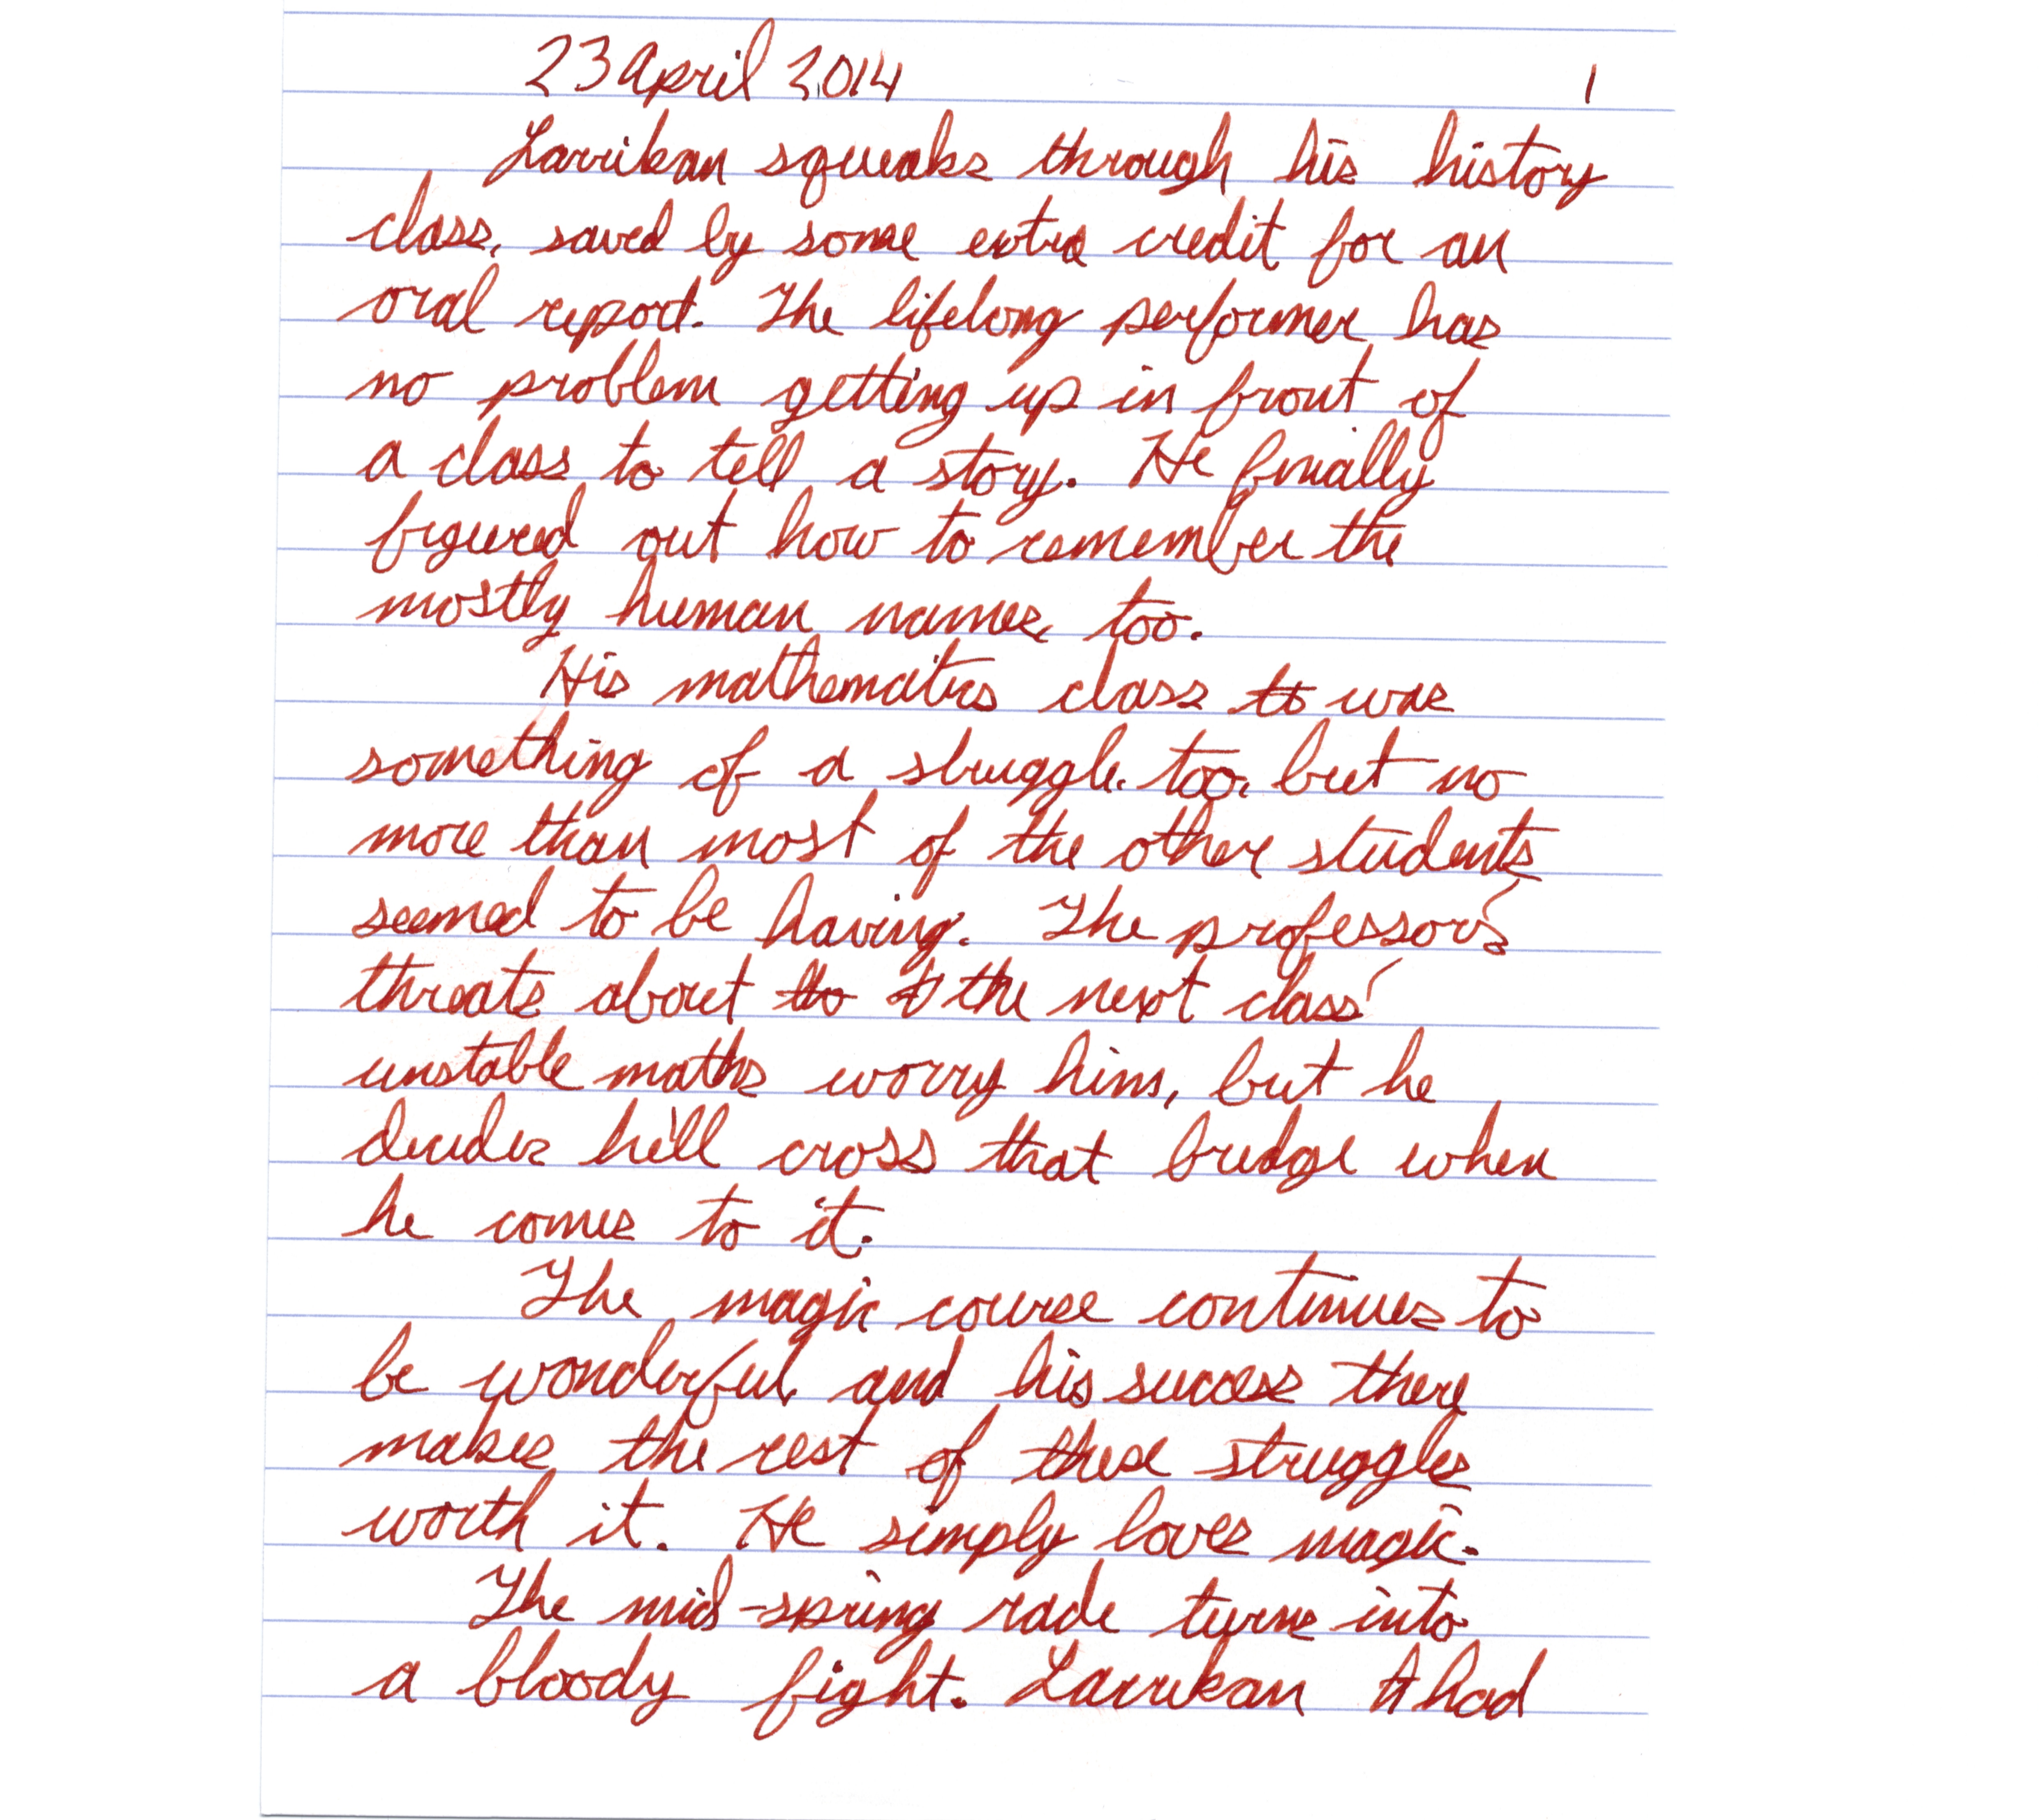 23 April 2014 1
Larrikan squeaks through his history
class, saved by some extra credit for an
oral report. The lifelong performer has
no problem getting up in front of
a class to tell a story. He finally
figured out how to remember the
mostly human names, too.
His mathematics class to was
something of a struggle, too, but no
more than most of the other students
seemed to be having. The professor's
threats about tho t the next class'
unstable maths worry him, but he
decides he'll cross that bridge when
he comes to it.
The magic course continues to
be wonderful, and his success there
makes the rest of these struggles
worth it. He simply loves magic.
The mid-spring rade turns into
a bloody fight. Larrikan t had